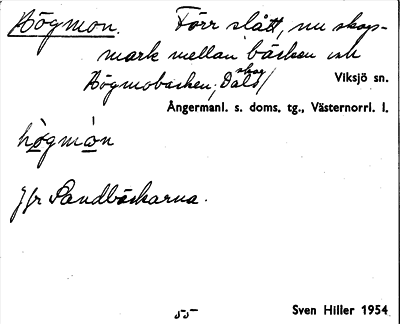 Högmon. Förr slått, nu skogs-
mark mellan bäcken och
Högmobäcken, Dals/
skog
Viksjö sn.
Ångermanl. s. doms. tg., Västernorrl. l.
hògmòn
Jfr Sandbäckarna.
55
Sven Hiller 1954